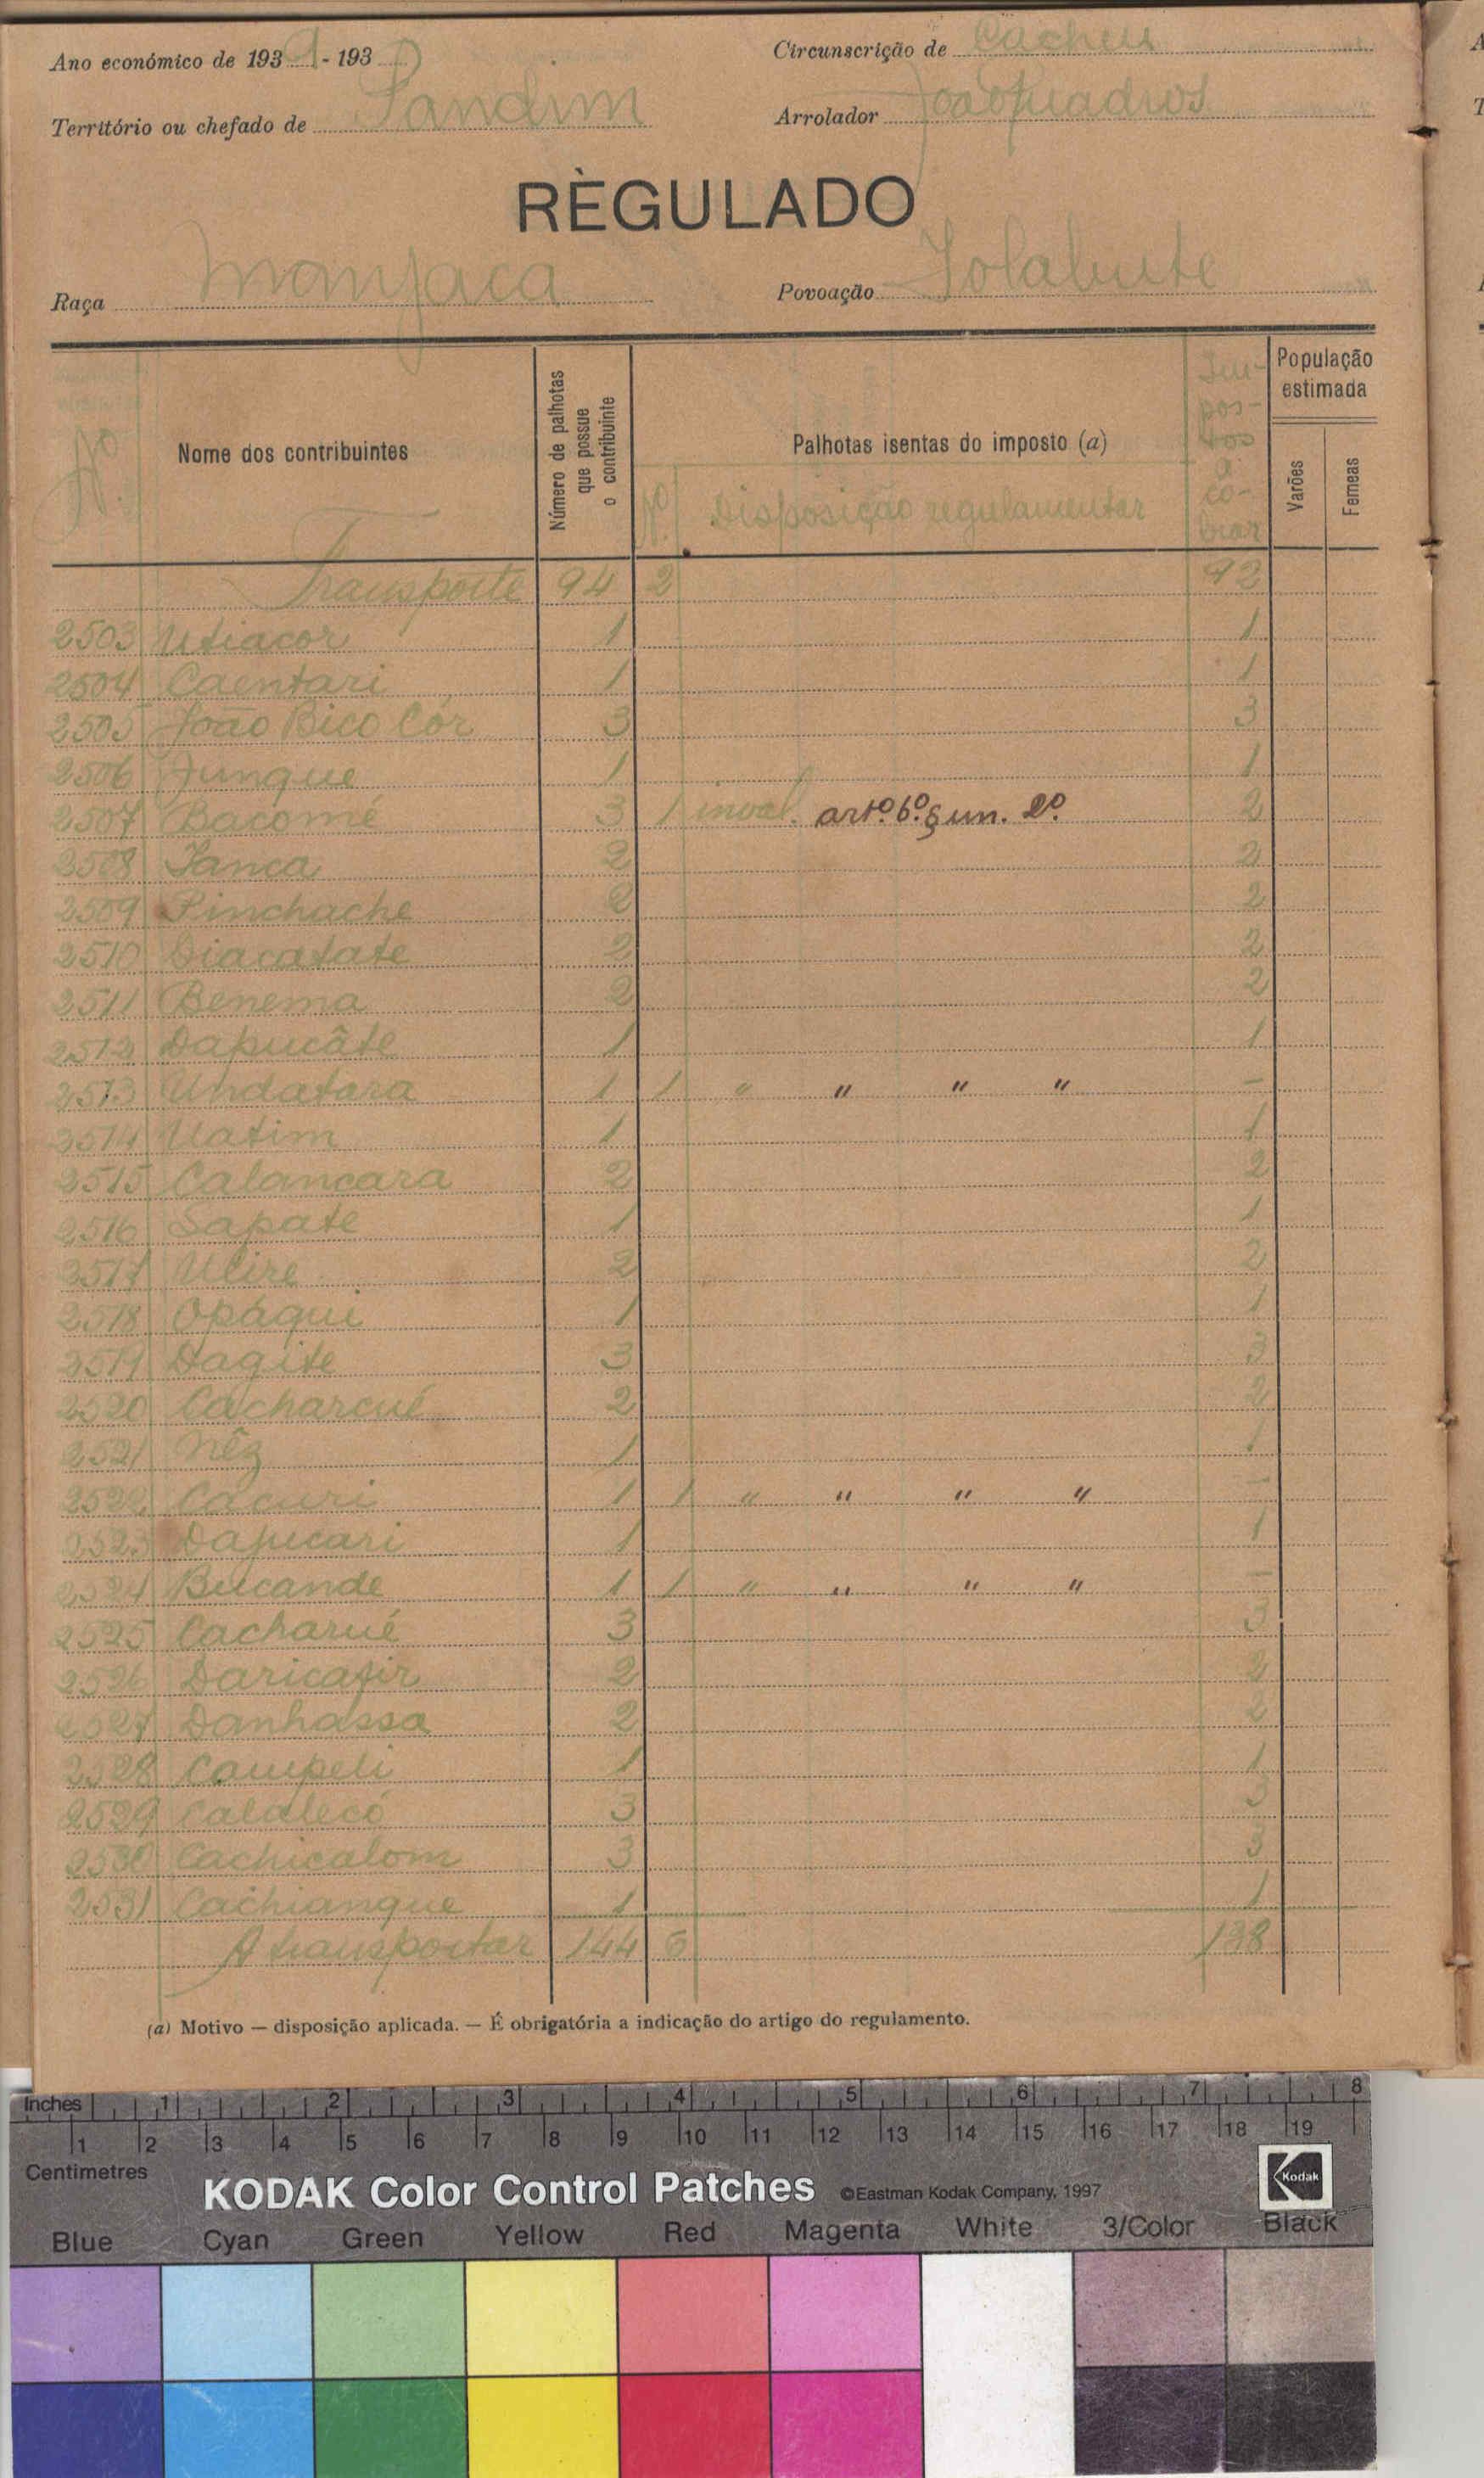 Ano económico de 193 - 193
Circunscrição de Cacheu
Território ou chefado de Pandim
Arrolador João Quadros
RÈGULADO
Raça Manjaca
Povoação
Nº
Nome dos contribuintes
Número de palhotas que possue o contribuinte
Palhotas isentas do imposto (a)
Nº Disposição regulamentar
Impostos a cobrar
População estimada
Varões
Femeas
Transporte 94 2 92
2503 Utiacor 1 1
2504 Caentari 1 1
2505 João Bico Côr 3 3
2506 Junque 1 1
2507 Bacomé 3 1 inval. artº. 6º. § un. 2º. 2
2508 Ianca 2 2
2509 Pinchache 2 2
2510 Diacatate 2 2
2511 Benema 2 2
2512 Dapucâte 1 1
2513 Undatara 1 1 " " " " –
2514 Uatim 1 1
2515 Calancara 2 2
2516 Sapate 1 1
2517 Ucire 2 2
2518 Opáqui 1 1
2519 Dagite 3 3
2520 Cacharcué 2 2
2521 Nêz 1 1
2522 Cacuri 1 1 " " " " –
2523 Dapucari 1 1
2524 Bucande 1 1 " " " " –
2525 Cacharué 3 3
2526 Daricafir 2 2
2527 Danhassa 2 2
2528 Campeli 1 1
2529 Calalecó 3 3
2530 Cachicalom 3 3
2531 Cachianque 1 1
A transportar 144 6 138
(a) Motivo — disposição aplicada. — É obrigatória a indicação do artigo do regulamento.
Inches 1 2 3 4 5 6 7 8
1 2 3 4 5 6 7 8 9 10 11 12 13 14 15 16 17 18 19
Centimetres
KODAK Color Control Patches ©Eastman Kodak Company, 1997 Kodak
Blue Cyan Green Yellow Red Magenta White 3/Color Black